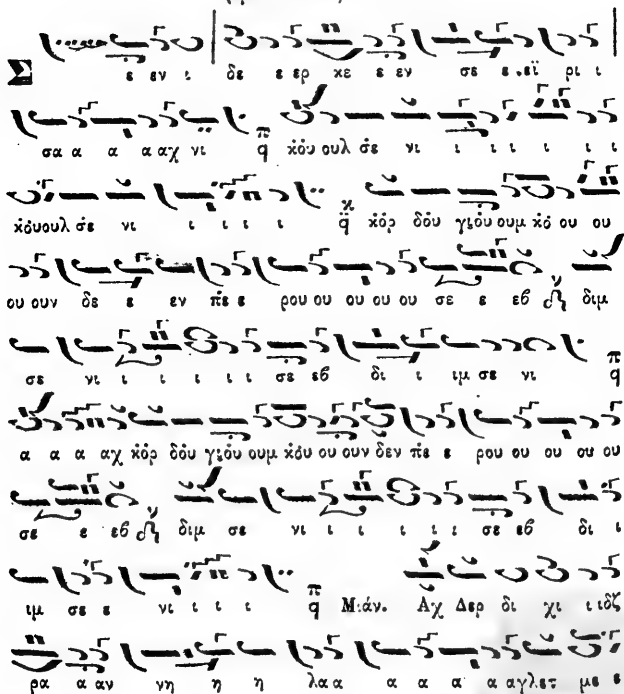 Σ ε εν ι δε ε ερ κε ε εν σε ε εϊ ρι ι
σα α α α αχ νι π q κόυ ουλ σε νι ι ι ι ι ι ι
κόυουλ σε νι ι ι ι ι κ q̈ κόρ δόυ γιόυ ουμ κό ου ου
ου ουν δε ε εν πε ε ρου ου ου ου ου σε ε εβ διμ
σε νι ι ι ι ι ι σε εβ δι ι ιμ σε νι π q
α α α αχ κόρ δόυ γιόυ ουμ κόυ ου ουν δεν πε ε ρου ου ου ου ου
σε ε εβ διμ σε νι ι ι ι ι ι σε εβ δι ι
ιμ σε ε νι ι ι ι π q Μιάν. Αχ Δερ δι χι ι ιδζ
ρα α αν νη η η λα α α α α α αγλετ με ε